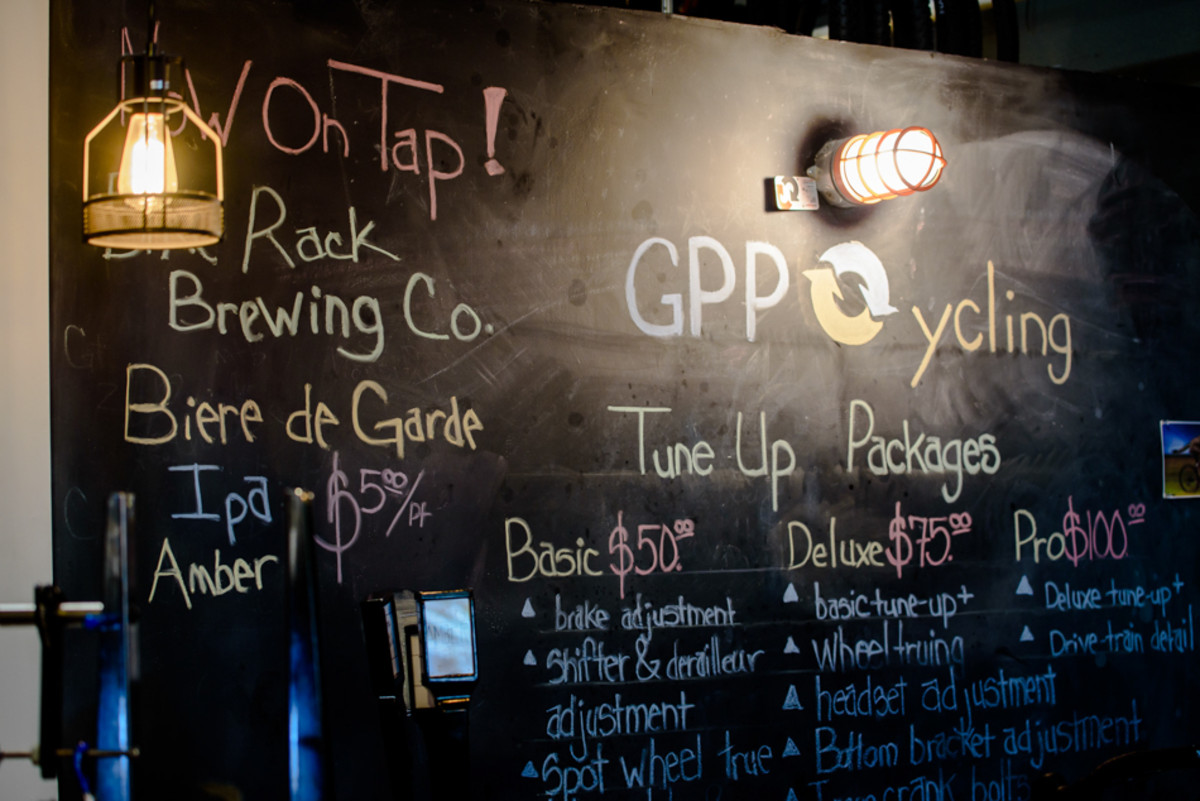 New On Tap!
Rack
Brewing Co.
Biere de Garde
Ipa $5.00/pt
Amber
GPP Cycling
Tune Up Packages
Basic $50.00
brake adjustment
Shifter & derailleur
adjustment
Spot wheel true
Deluxe $75.00
basic tune-up+
Wheel truing
headset adjustment
Bottom bracket adjustment
crank bolts
Pro $100.00
Deluxe tune-up+
Drive-train detail